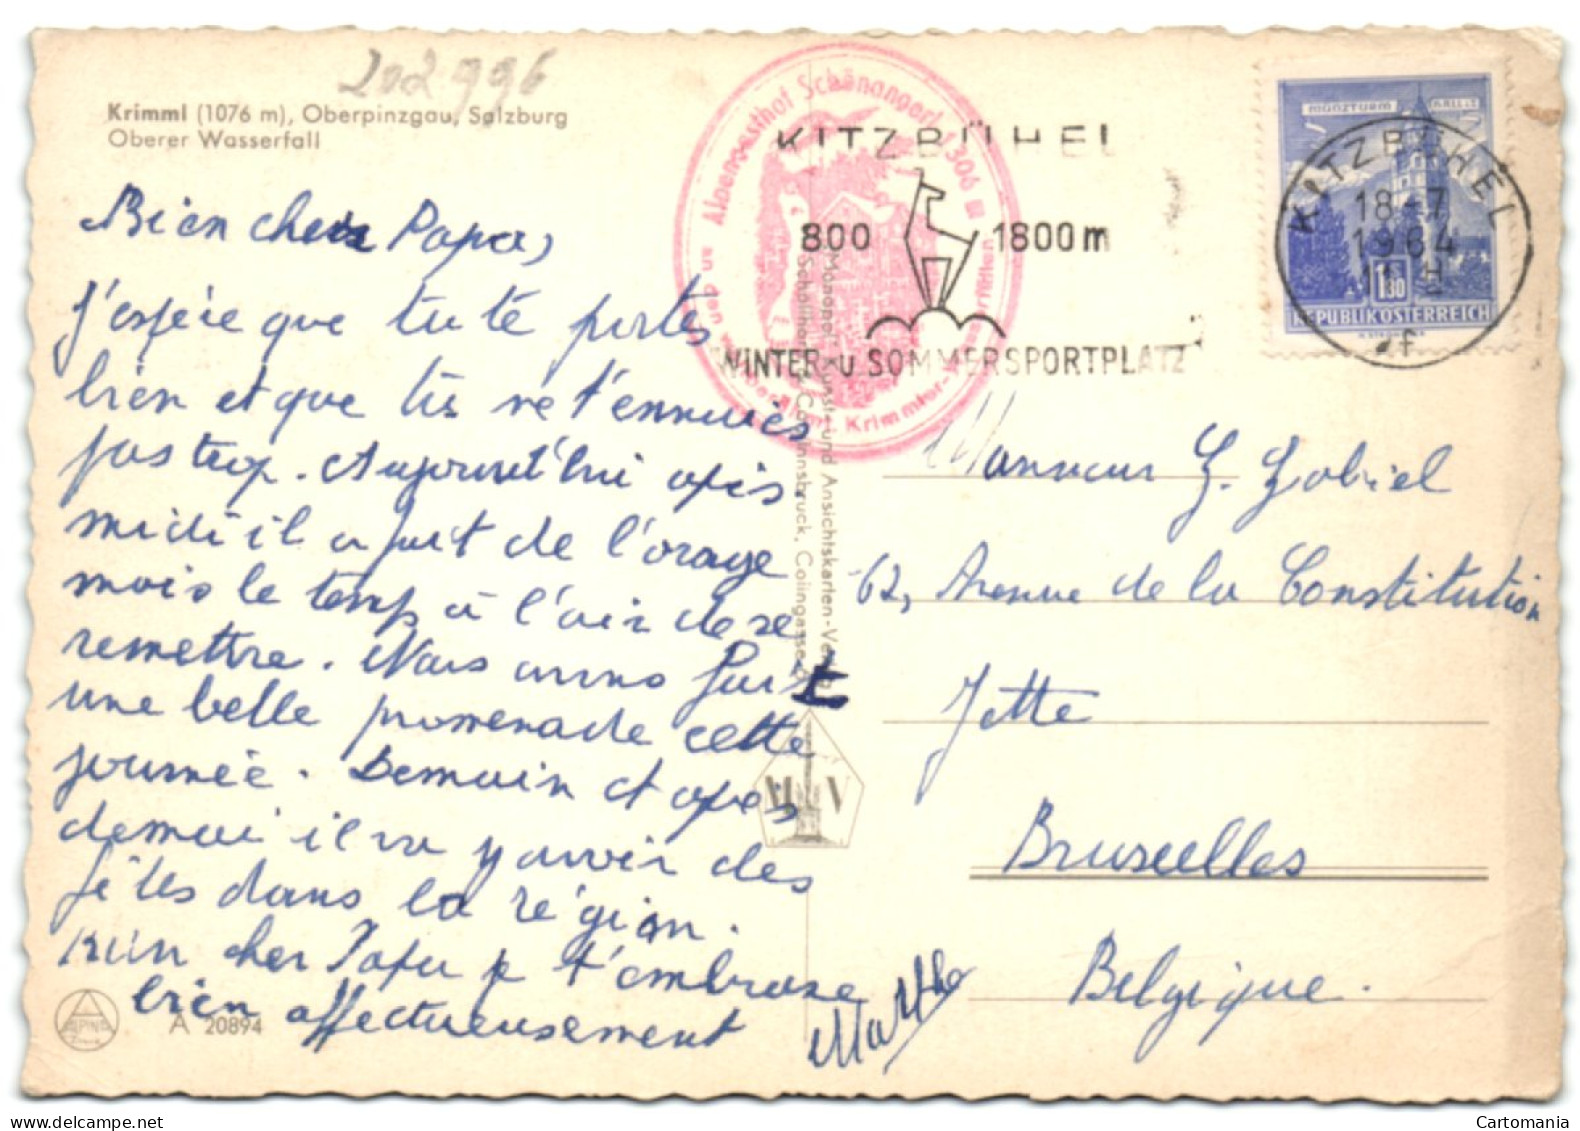 202996
Krimml (1076 m), Oberpinzgau, Salzburg
Oberer Wasserfall
Bien cher Papa,
J'espère que tu te portes
bien et que tu ne t'ennuies
pas trop. Aujourd'hui après
midi il a fait de l'orage
mais le temps à l'air de se
remettre. Nous avons fait
une belle promenade cette
journée. Demain et après
demain il va y avoir des
fêtes dans la région.
Mon cher Papa je t'embrasse
bien affectueusement
Marthe
ALPINA
A 20894
Alpengasthof Schönangerl 1306 m
an den weltberühmt. Krimmler-Wasserfällen
KITZBÜHEL
800 1800 m
WINTER- u. SOMMERSPORTPLATZ
"Monopol" Kunst- und Ansichtskarten-Verlag
Schöllhorn & Co., Innsbruck, Colingasse
M V
MÜNZTURM HALL i. T.
1.30
REPUBLIK ÖSTERREICH
KITZBÜHEL
18-7
1964
f
Monsieur G. Gabriel
62, Avenue de la Constitution
Jette
Bruxelles
Belgique.
Cartomania